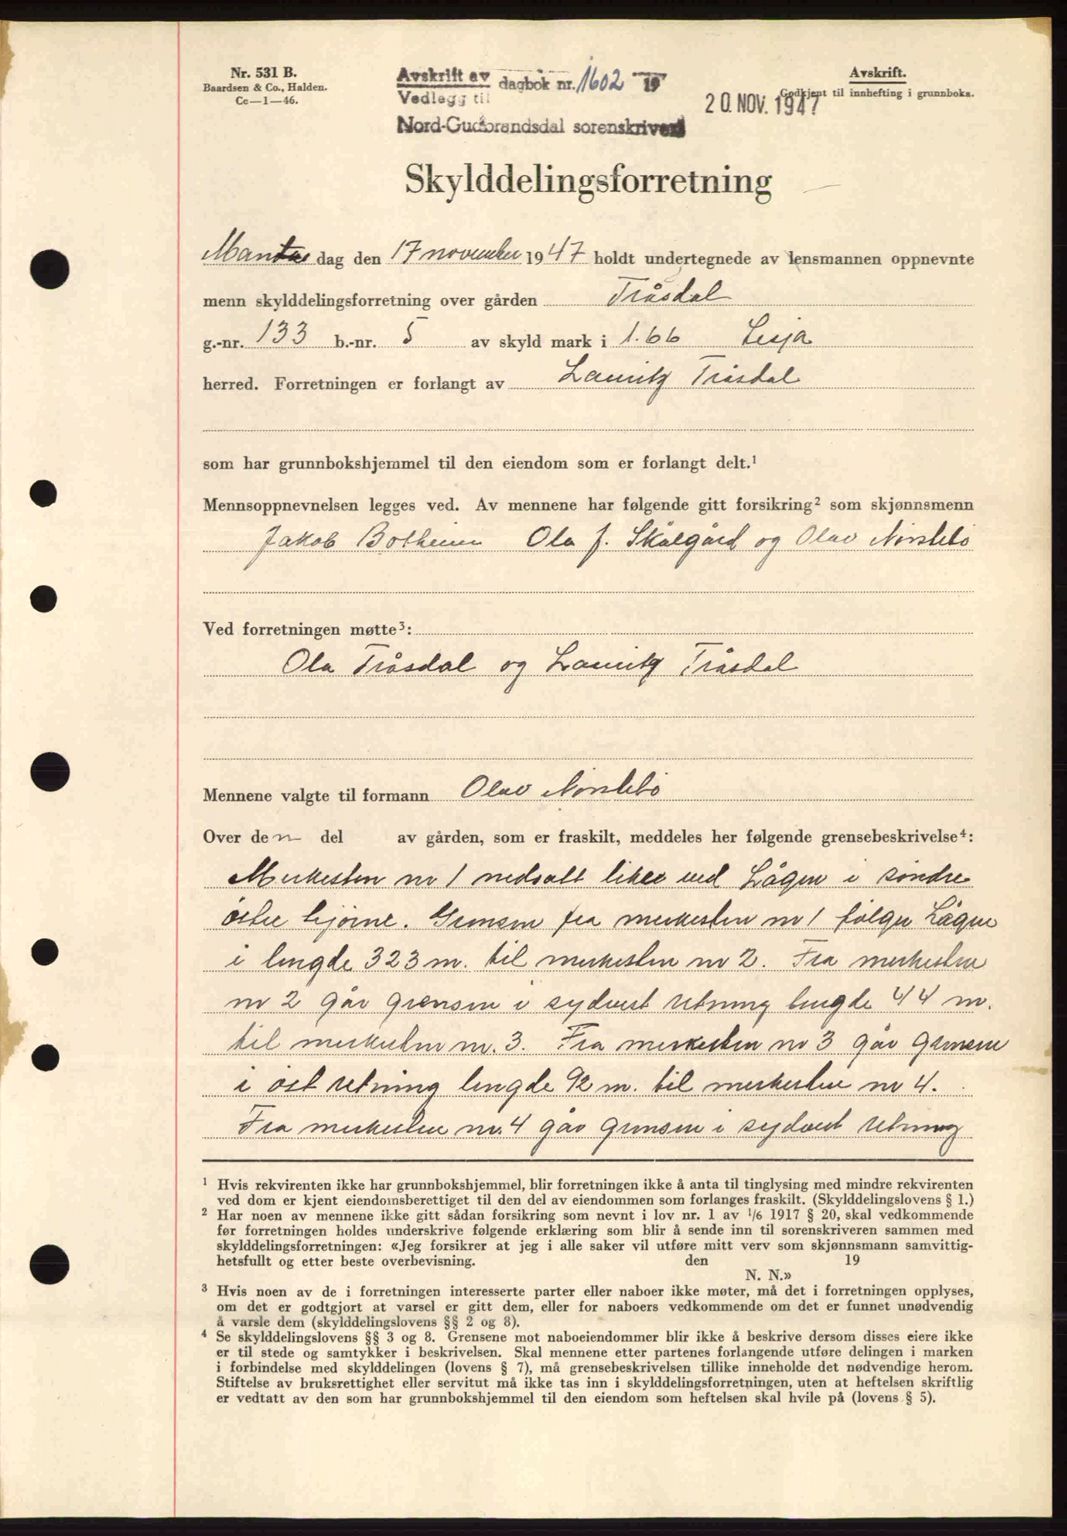 Nr. 531 B.
Baardsen & Co., Halden.
Cc—1—46.
Avskrift av
Vedlegg til
dagbok nr. 1602 19
Nord-Gudbrandsdal sorenskriveri
20. NOV. 1947
Avskrift.
Godkjent til innhefting i grunnboka.
Skylddelingsforretning
Manda dag den 17 november 1947 holdt undertegnede av lensmannen oppnevnte
menn skylddelingsforretning over gården Tråsdal
g.-nr. 133 b.-nr. 5 av skyld mark i 1.66 Lesja
herred. Forretningen er forlangt av Lauritz Tråsdal
som har grunnbokshjemmel til den eiendom som er forlangt delt.¹
Mennsoppnevnelsen legges ved. Av mennene har følgende gitt forsikring² som skjønnsmenn
Jakob Botheim Ola J. Skålgård og Olav Norstebø
Ved forretningen møtte³:
Ola Tråsdal og Lauritz Tråsdal
Mennene valgte til formann Olav Norstebø
Over den del av gården, som er fraskilt, meddeles her følgende grensebeskrivelse⁴:
Merkesten nr 1 nedsatt like ved Lågen i søndre
østre hjørne. Grensen fra merkesten nr 1 følger Lågen
i lengde 323 m. til merkesten nr 2. Fra merkesten
nr 2 går grensen i sydvest retning lengde 44 m.
til merkesten nr. 3. Fra merkesten nr 3 går grensen
i øst retning lengde 92 m. til merkesten nr 4.
Fra merkesten nr. 4 går grensen i sydvest retning
¹ Hvis rekvirenten ikke har grunnbokshjemmel, blir forretningen ikke å anta til tinglysing med mindre rekvirenten
ved dom er kjent eiendomsberettiget til den del av eiendommen som forlanges fraskilt. (Skylddelingslovens § 1.)
² Har noen av mennene ikke gitt sådan forsikring som nevnt i lov nr. 1 av 1/6 1917 § 20, skal vedkommende
før forretningen holdes underskrive følgende erklæring som blir å sende inn til sorenskriveren sammen med
skylddelingsforretningen: «Jeg forsikrer at jeg i alle saker vil utføre mitt verv som skjønnsmann samvittig-
hetsfullt og etter beste overbevisning. den 19
N. N.»
³ Hvis noen av de i forretningen interesserte parter eller naboer ikke møter, må det i forretningen opplyses,
om det er godtgjort at varsel er gitt dem, eller for naboers vedkommende om det er funnet unødvendig
å varsle dem (skylddelingslovens §§ 2 og 8).
⁴ Se skylddelingslovens §§ 3 og 8. Grensene mot naboeiendommer blir ikke å beskrive dersom disses eiere ikke
er til stede og samtykker i beskrivelsen. Skal mennene etter partenes forlangende utføre delingen i marken
i forbindelse med skylddelingen (lovens § 7), må grensebeskrivelsen tillike inneholde det nødvendige herom.
Stiftelse av bruksrettighet eller servitut må ikke tas inn i skylddelingsforretningen, uten at heftelsen skriftlig
er vedtatt av den som har grunnbokshjemmel til den eiendom som heftelsen skal hvile på (lovens § 5).